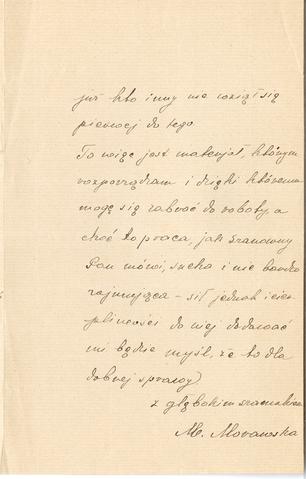 już kto inny nie wziął się
pierwej do tego.
To więc jest materjał, którym
rozporządzam i dzięki któremu
mogę się zabrać do roboty, a
choć to praca, jak Szanowny
Pan mówi, sucha i nie bardzo
zajmująca – sił jednak i cier-
pliwości do niej dodawać
mi będzie myśl, że to dla
dobrej sprawy.
z głębokim szacunkiem
M. Morawska